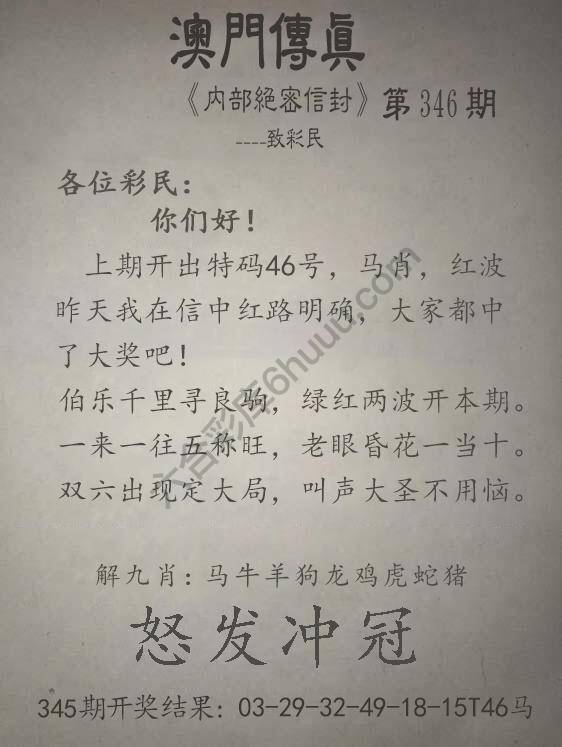 澳門傳眞
《内部絕密信封》第346期
----致彩民
各位彩民：
你们好！
上期开出特码46号，马肖，红波
昨天我在信中红路明确，大家都中
了大奖吧！
伯乐千里寻良驹，绿红两波开本期。
一来一往五称旺，老眼昏花一当十。
双六出现定大局，叫声大圣不用恼。
六合彩库6huuu.com
解九肖：马牛羊狗龙鸡虎蛇猪
怒发冲冠
345期开奖结果：03-29-32-49-18-15T46马